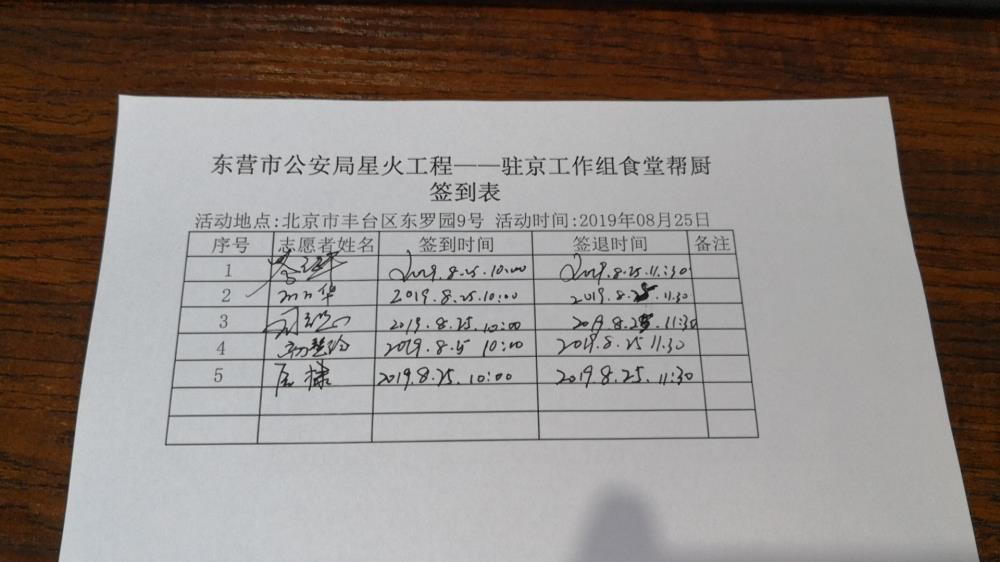 东营市公安局星火工程——驻京工作组食堂帮厨
签到表
活动地点:北京市丰台区东罗园9号 活动时间:2019年08月25日
序号 志愿者姓名 签到时间 签退时间 备注
1 2019.8.25.10:00 2019.8.25.11:30
2 2019.8.25.10:00 2019.8.25.11:30
3 2019.8.25.10:00 2019.8.25.11:30
4 2019.8.5 10:00 2019.8.25 11:30
5 2019.8.25.10:00 2019.8.25.11:30